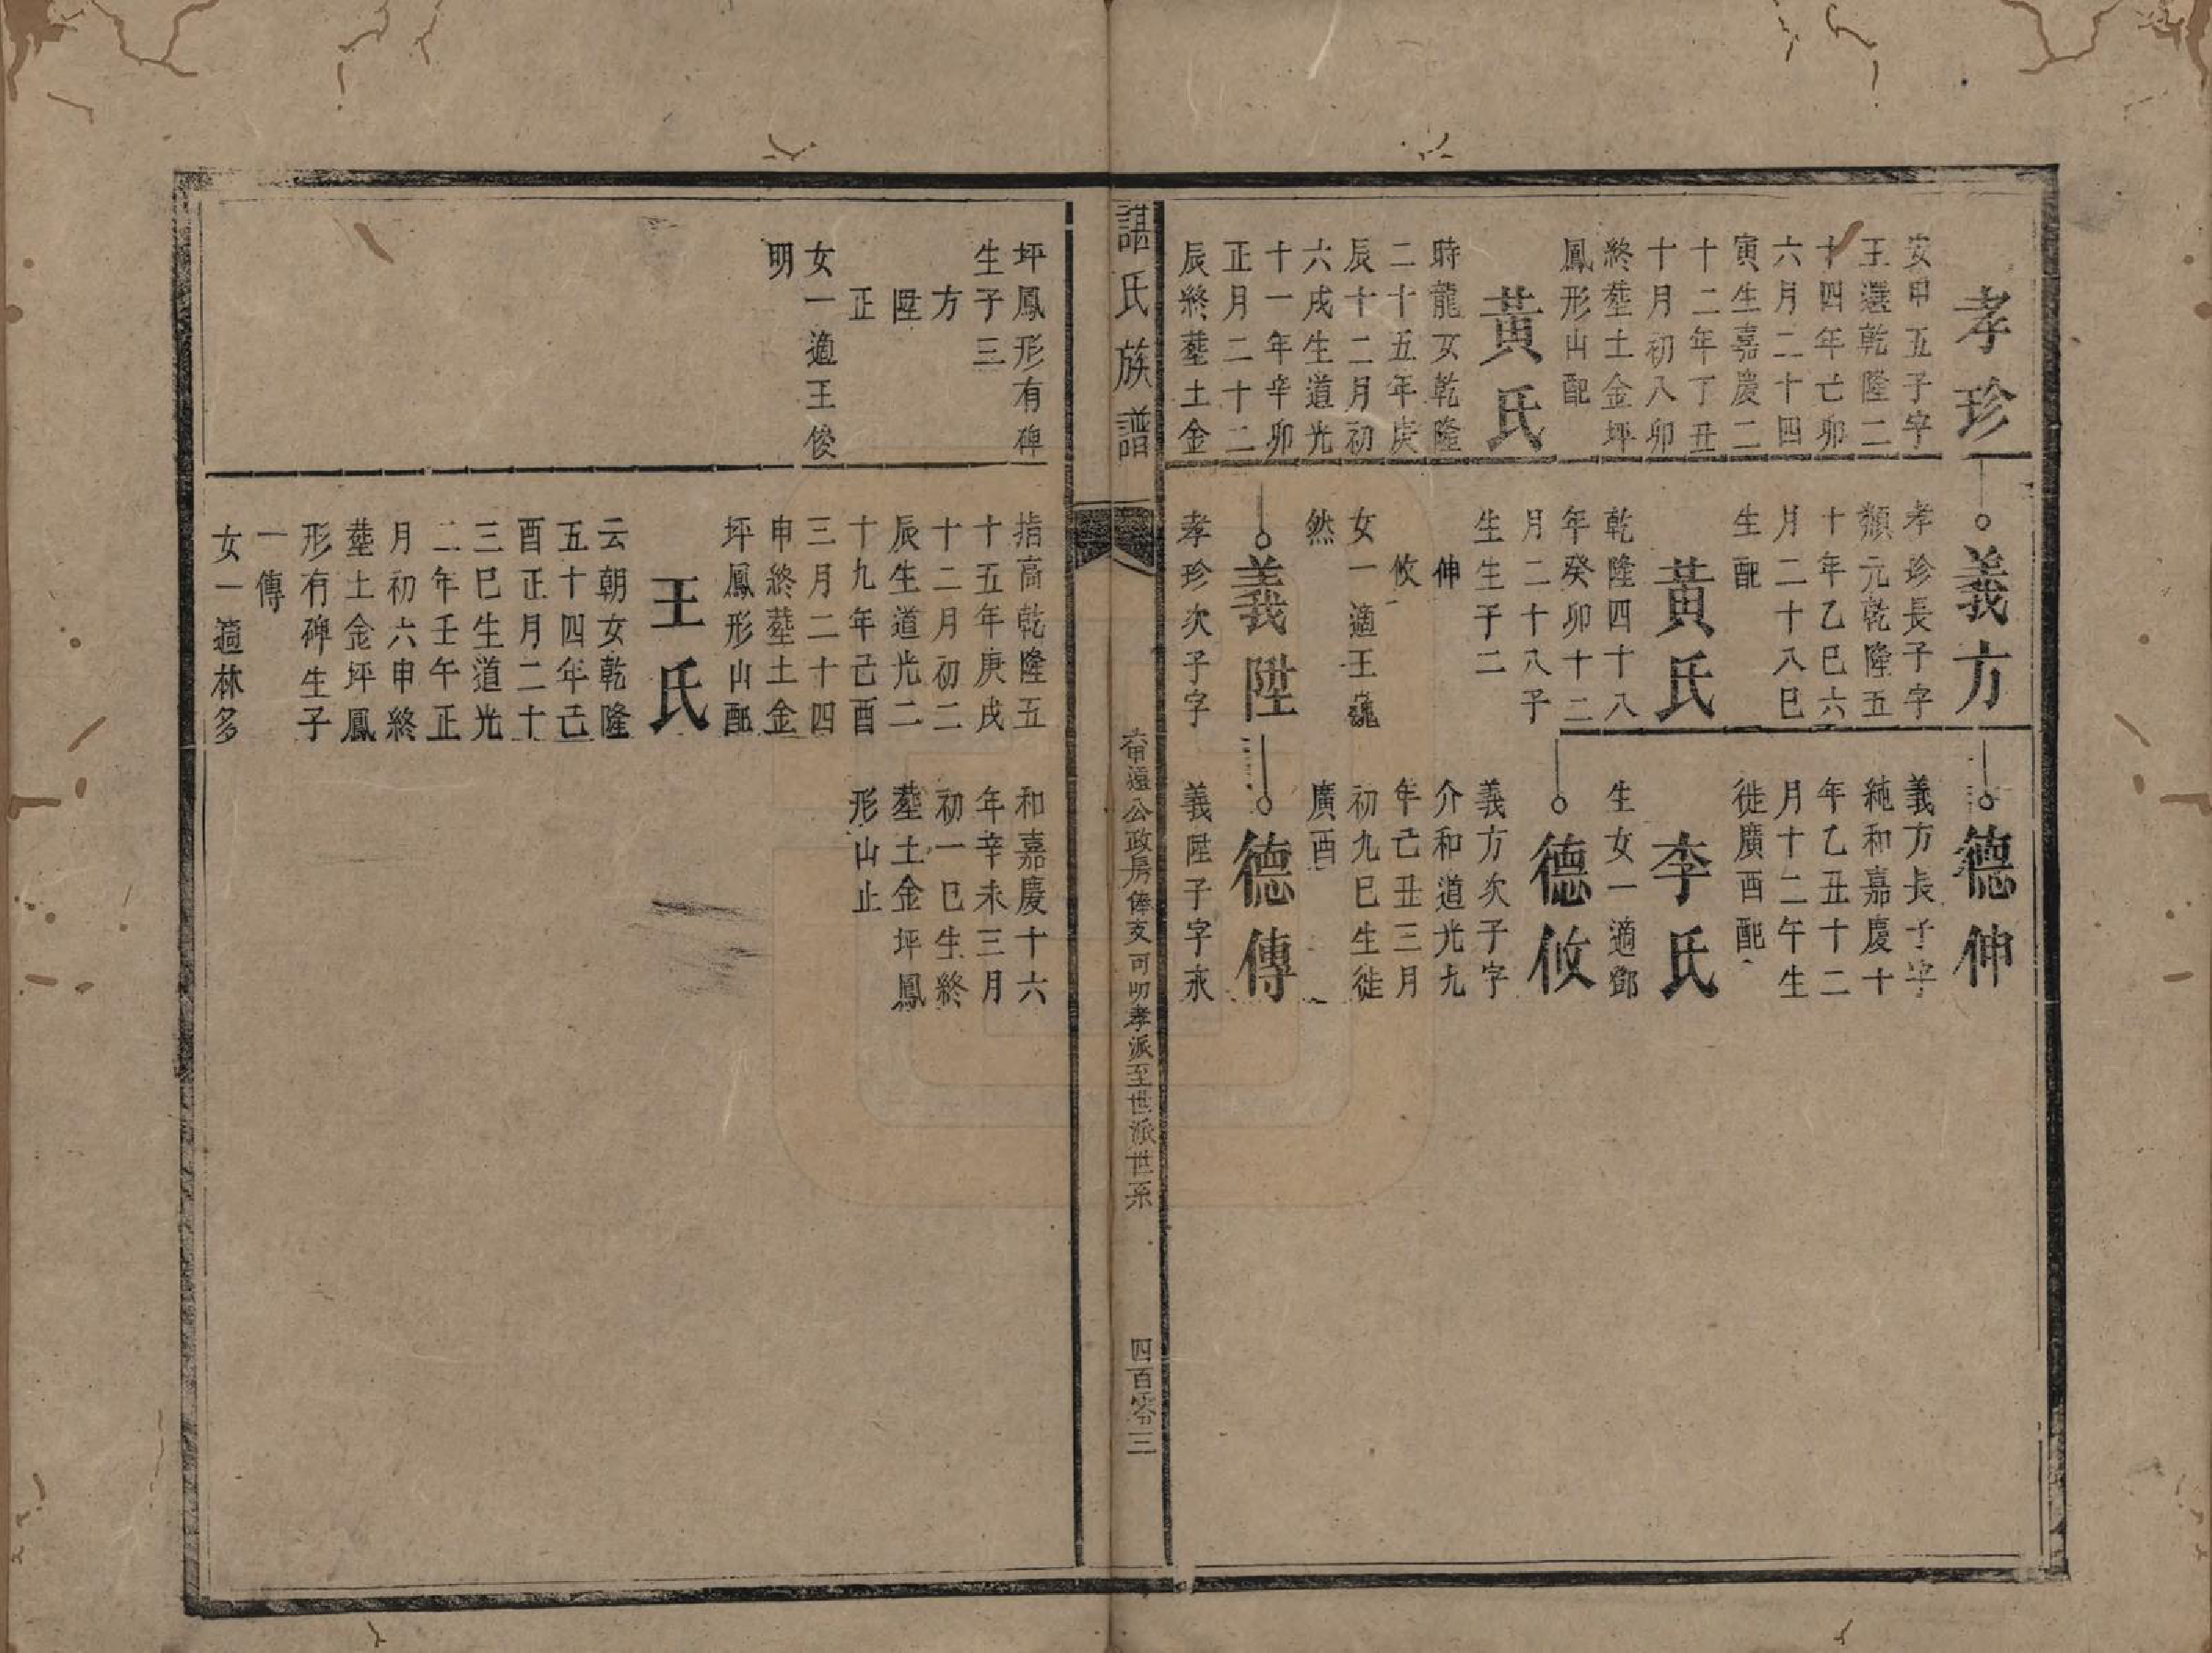 孝珍
安甲五子字
王選乾隆二
十四年己卯
六月二十四
寅生嘉慶二
十二年丁丑
十月初八卯
終塟土金坪
鳳形山配
黃氏
時龍女乾隆
二十五年庚
辰十二月初
六戌生道光
十一年辛卯
正月二十二
辰終塟土金
義方
孝珍長子字
顏元乾隆五
十年乙巳六
月二十八巳
生配
黃氏
乾隆四十八
年癸卯十二
月二十八子
生生子二
伸
攸
女一適王魂
然
義陞
孝珍次子字
德伸
義方長子字
純和嘉慶十
年乙丑十二
月十二午生
徙廣西配
李氏
生女一適鄧
德攸
義方次子字
介和道光九
年己丑三月
初九巳生徙
廣西
德傳
義陞子字永
諶氏族譜
公政房俸支可明孝派至世派世系
四百零三
坪鳳形有碑
生子三
方
陞
正
女一適王俊
明
指高乾隆五
十五年庚戌
十二月初二
辰生道光二
十九年己酉
三月二十四
申終塟土金
坪鳳形山配
王氏
云朝女乾隆
五十四年己
酉正月二十
三巳生道光
二年壬午正
月初六申終
塟土金坪鳳
形有碑生子
一傳
女一適林多
和嘉慶十六
年辛未三月
初一巳生終
塟土金坪鳳
形山止